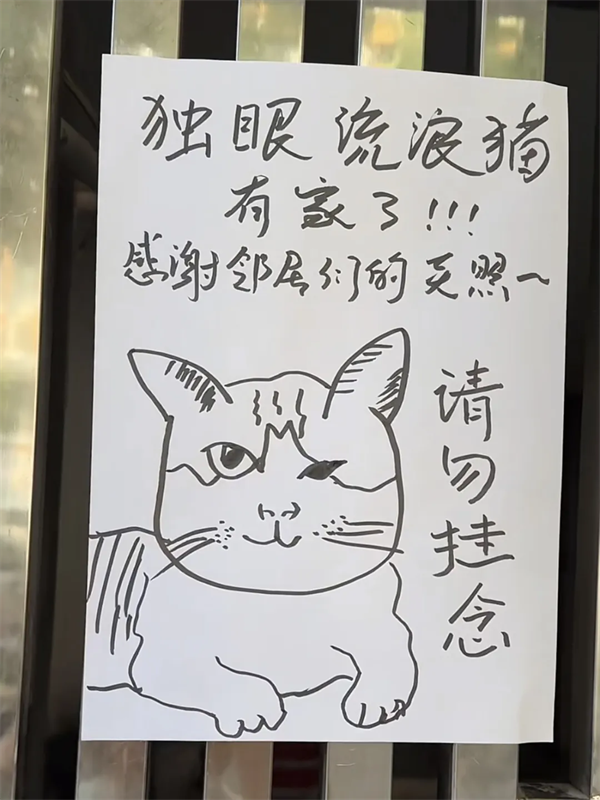 独眼流浪猫
有家了!!!
感谢邻居们的关照~
请勿挂念